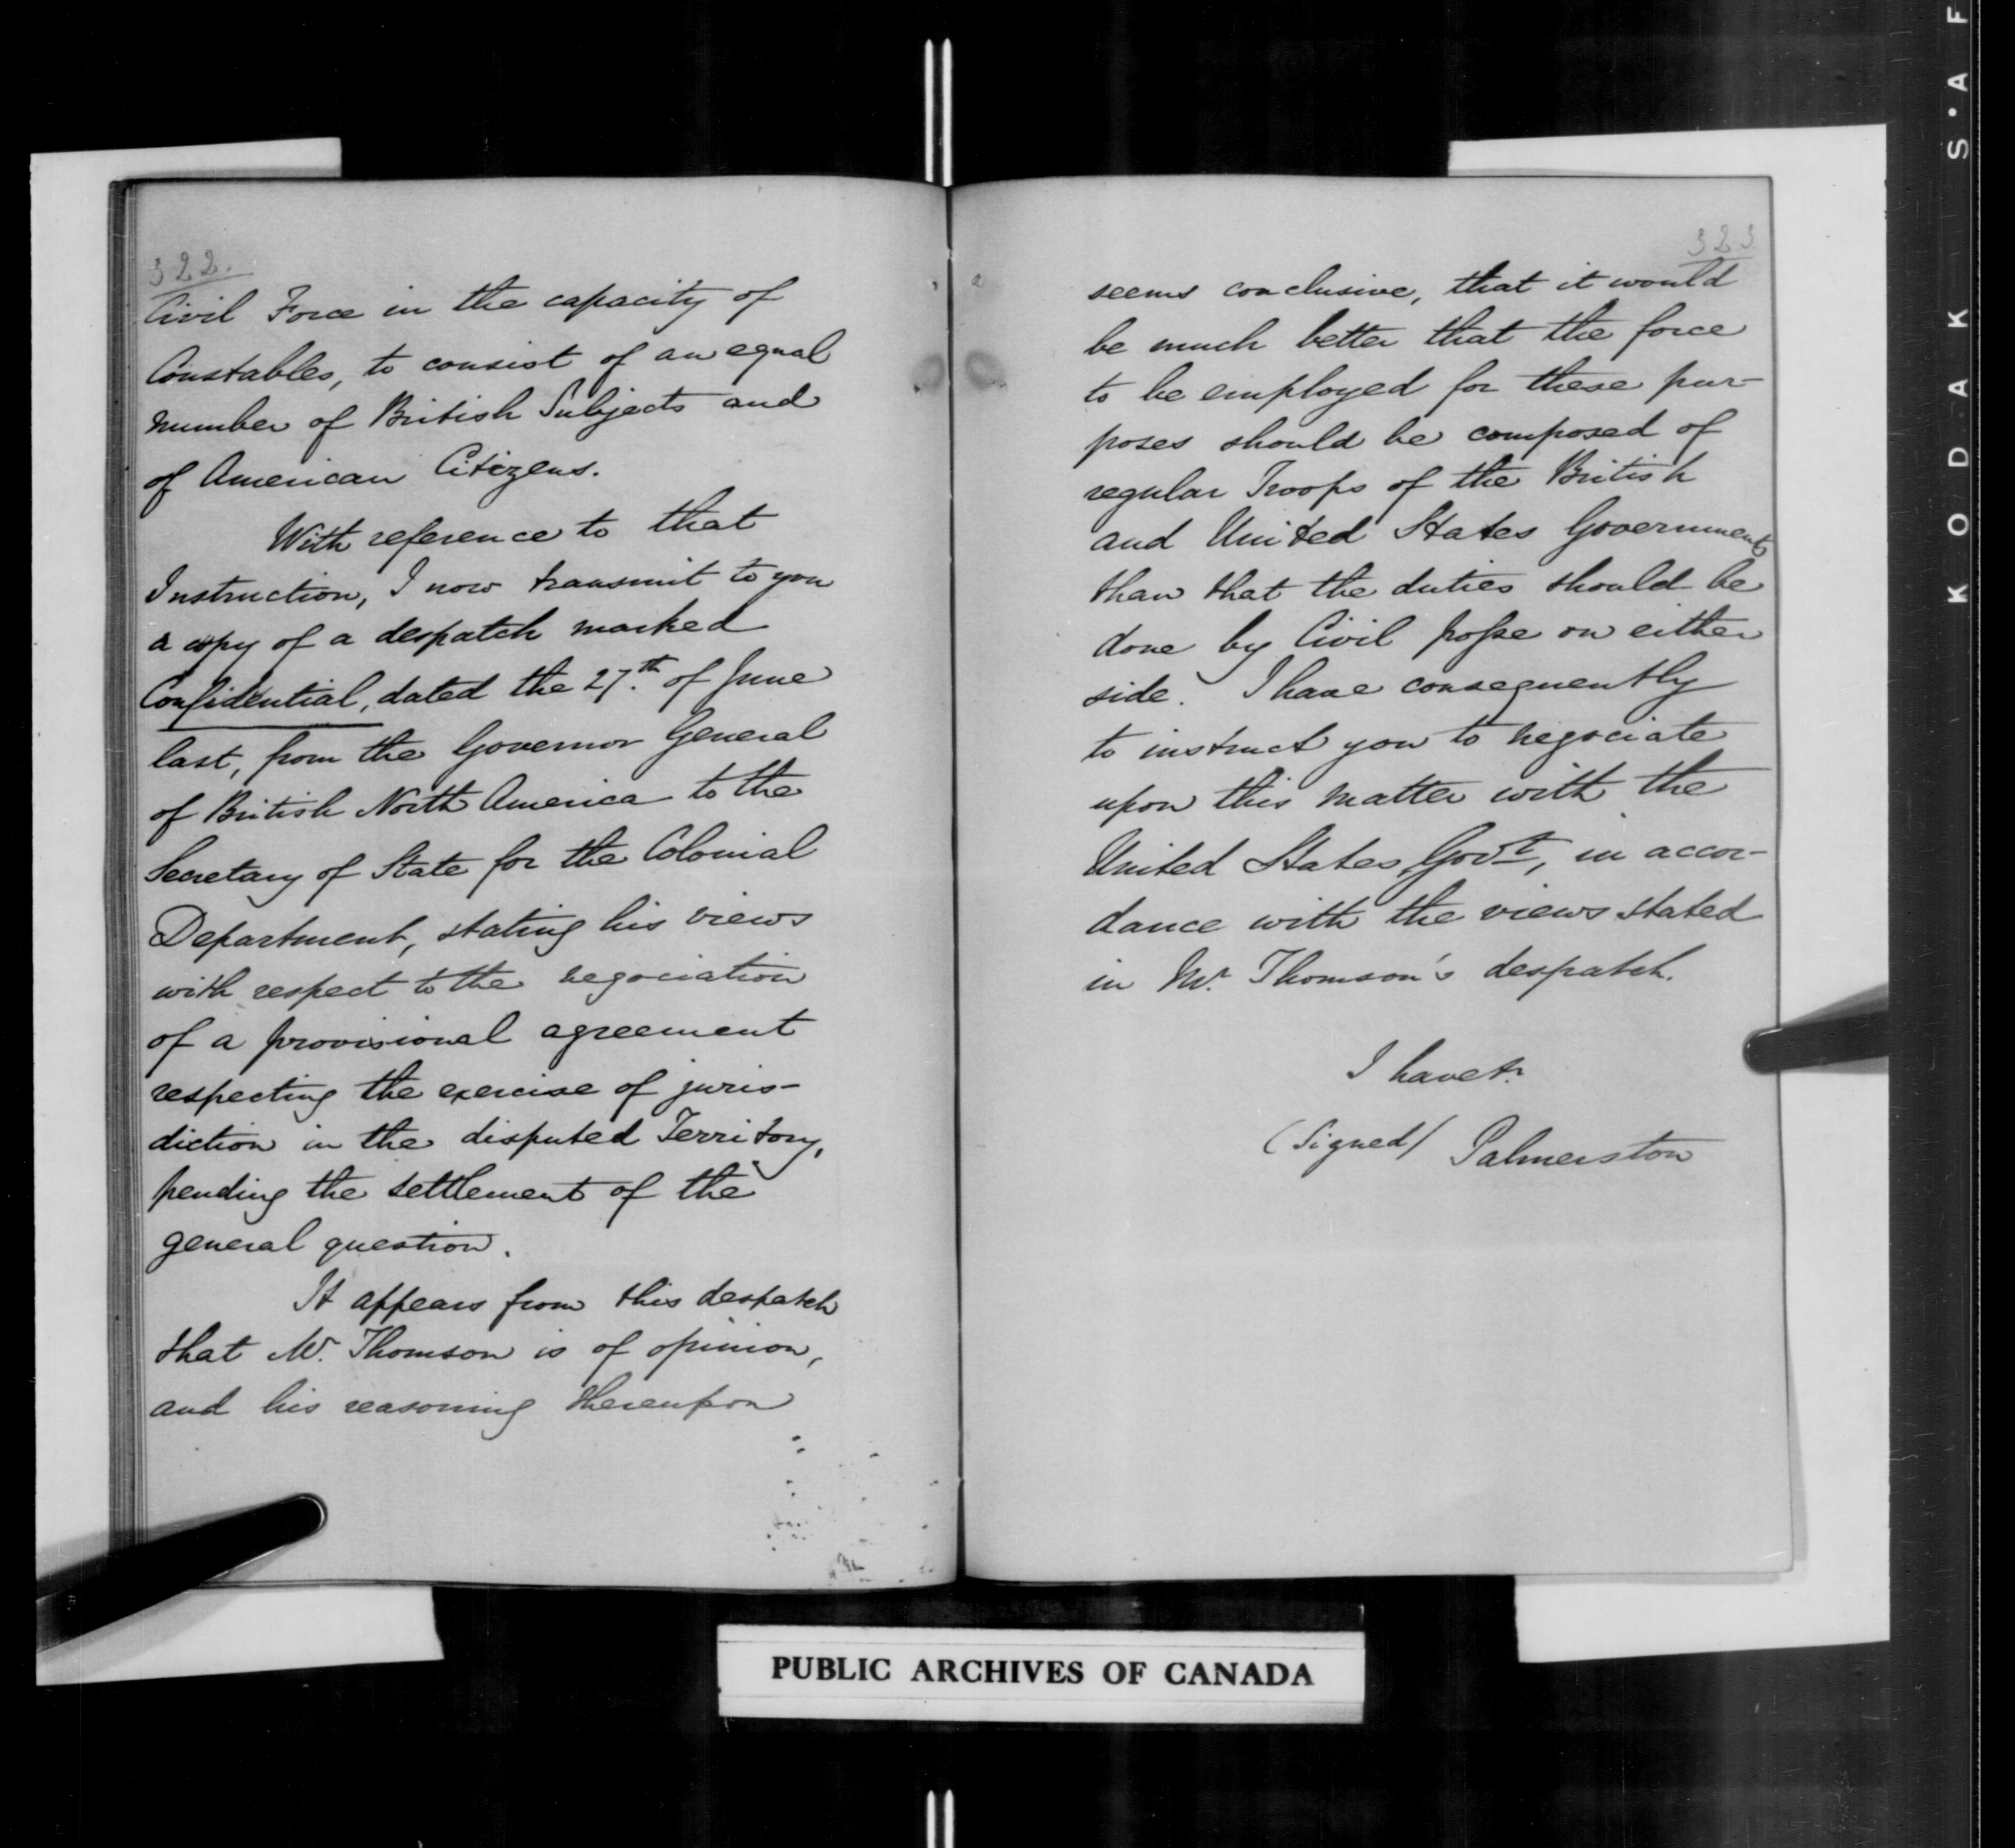 322.
Civil Force in the capacity of
Constables, to consist of an equal
number of British Subjects and
of American Citizens.
With reference to that
Instruction, I now transmit to you
a copy of a despatch marked
Confidential, dated the 27.th of June
last, from the Governor General
of British North America to the
Secretary of State for the Colonial
Department, stating his views
with respect to the negociation
of a provisional agreement
respecting the exercise of juris-
diction in the disputed Territory,
pending the settlement of the
general question.
It appears from this despatch
that Mr. Thomson is of opinion,
and his reasoning thereupon
323
seems conclusive, that it would
be much better that the force
to be employed for these pur-
poses should be composed of
regular Troops of the British
and United States Governments
than that the duties should be
done by Civil posse on either
side. I have consequently
to instruct you to negociate
upon this matter with the
United States Govt, in accor-
dance with the views stated
in Mr. Thomson's despatch.
I have &c
(Signed) Palmerston
PUBLIC ARCHIVES OF CANADA
KODAK S·AF